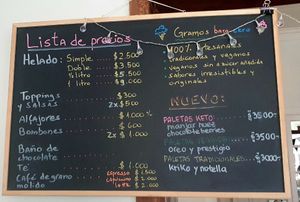 Lista de precios
Helado: Simple $2.500
Doble $3.500
1/2 litro $5.500
1 litro $9.000
Toppings $300
y Salsas 2x $500
Alfajores $1.000 c/u
Bombones $600
2x $1.000
Baño de
chocolate
Te $1.000
Café de grano espresso $1.500
molido capuccino $2.000
latte $2.000
Gramos bajo cero
100% Artesanales
Tradicionales y veganos
Veganos sin azucar añadida
Sabores irresistibles y
originales
NUEVO:
PALETAS KETO $3500
manjar nuez
chocoberries
$3500
oreo y prestigio
PALETAS TRADICIONALES $3000
kriko y notella